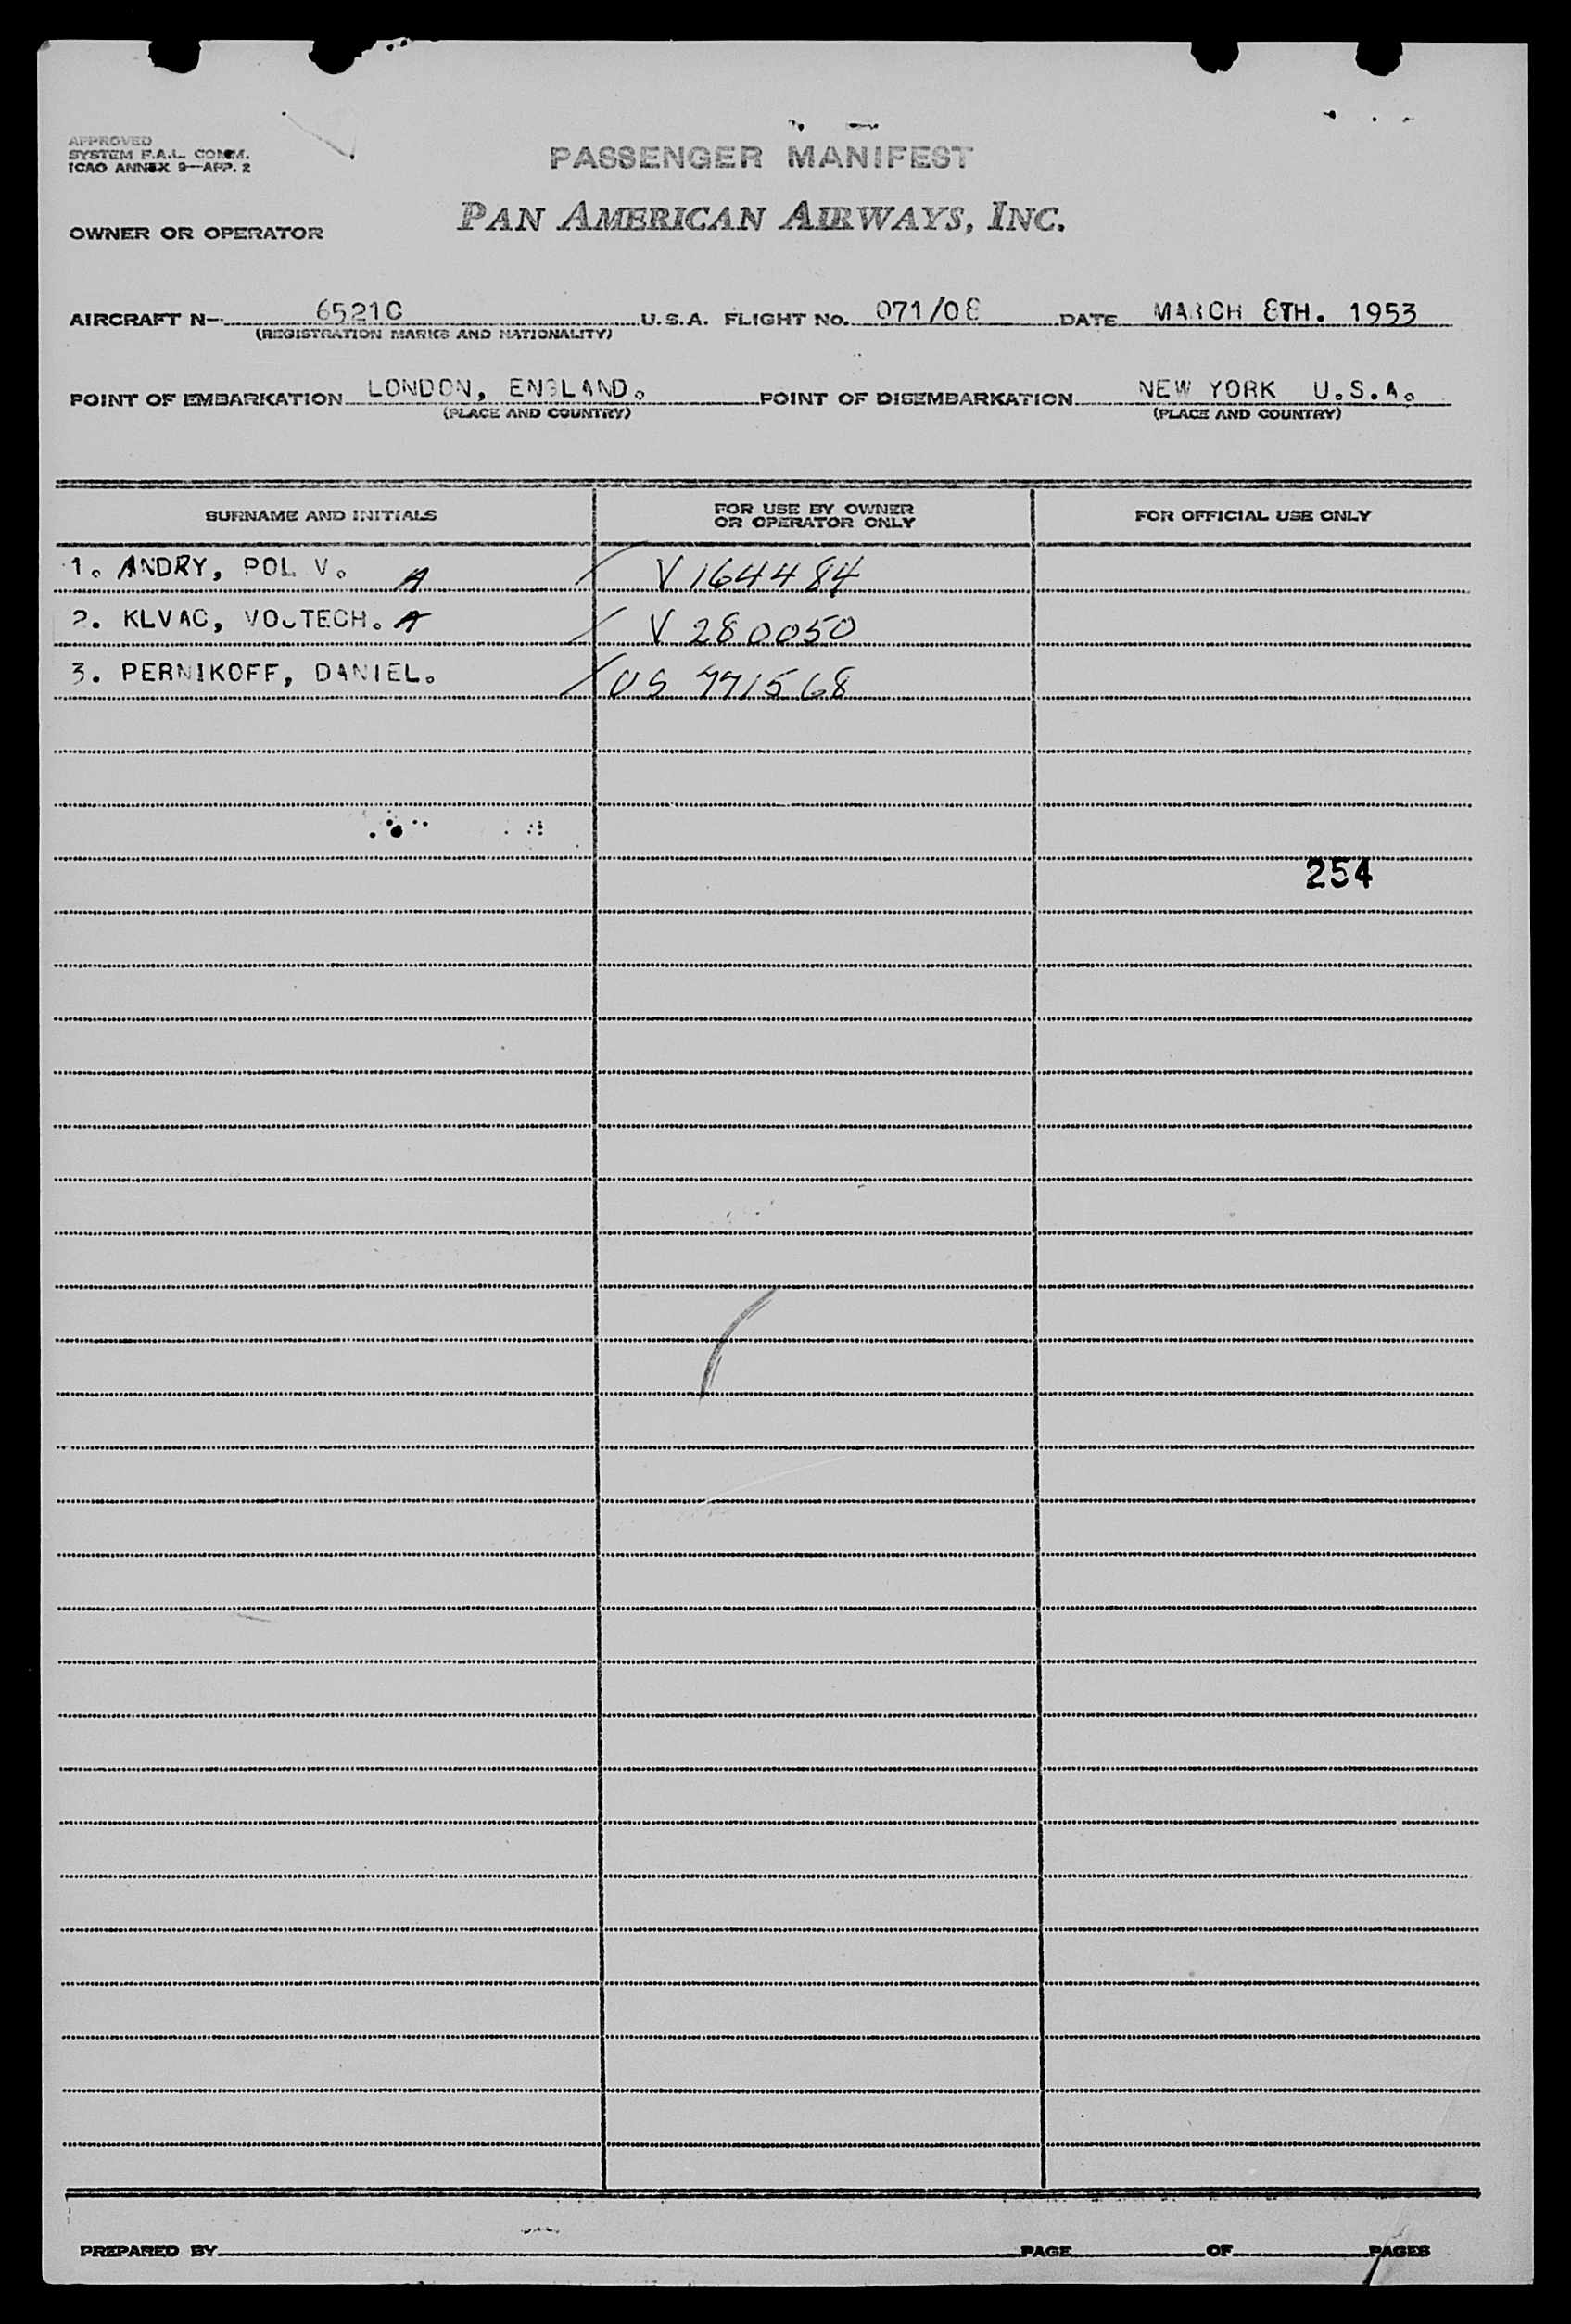 APPROVED
SYSTEM F.A.L. COMM.
ICAO ANNEX 9—APP. 2
PASSENGER MANIFEST
OWNER OR OPERATOR PAN AMERICAN AIRWAYS, INC.
AIRCRAFT N- 6521C U.S.A. FLIGHT No. 071/08 DATE MARCH 8TH. 1953
(REGISTRATION MARKS AND NATIONALITY)
POINT OF EMBARKATION LONDON, ENGLAND. POINT OF DISEMBARKATION NEW YORK U.S.A.
(PLACE AND COUNTRY) (PLACE AND COUNTRY)
SURNAME AND INITIALS FOR USE BY OWNER OR OPERATOR ONLY FOR OFFICIAL USE ONLY
1. ANDRY, POL V. A V 164484
2. KLVAC, VOJTECH. A V 280050
3. PERNIKOFF, DANIEL. US
254
PREPARED BY PAGE OF PAGES